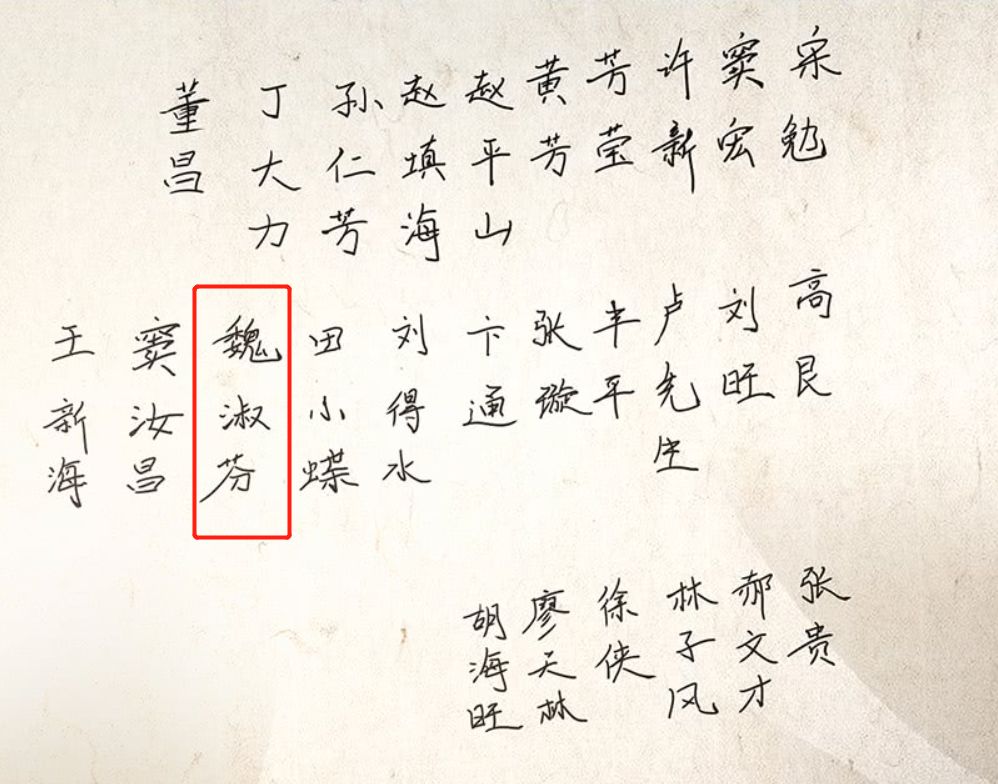 宋勉
窦宏
许新
芳莹
黄芳
赵平山
赵填海
孙仁芳
丁大力
董昌
高艮
刘旺
卢先生
丰平
张璇
卞通
刘得水
田小蝶
魏淑芬
窦汝昌
王新海
张贵
郝文才
林子风
徐侠
廖天林
胡海旺